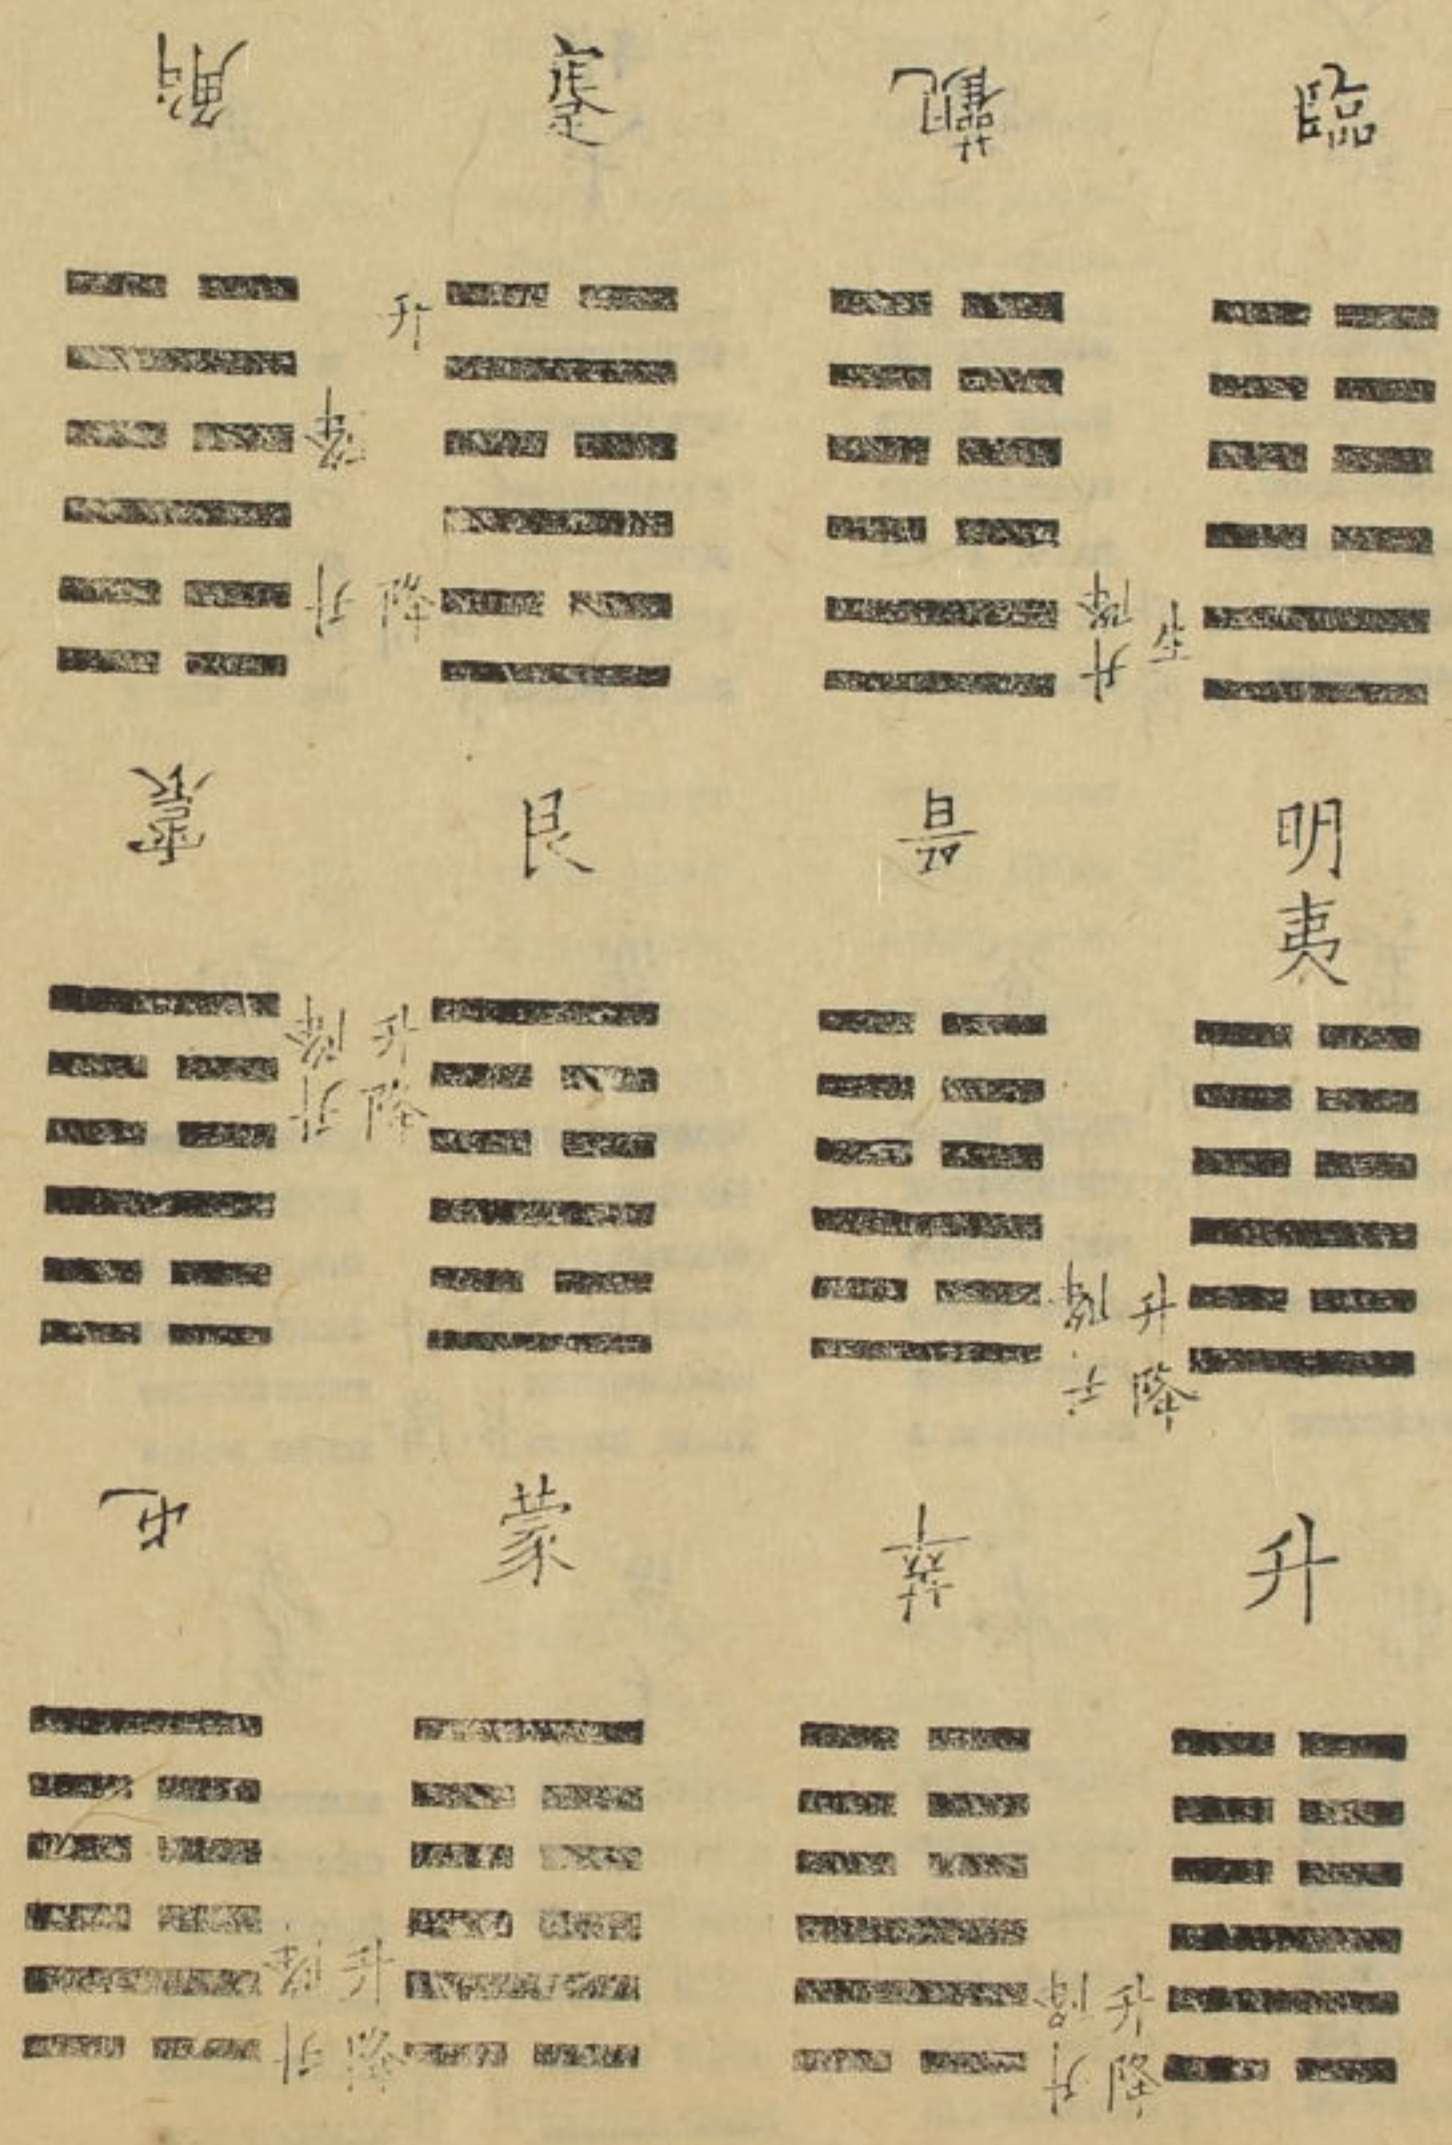 臨
觀
蹇
解
升
降
升
降
升
明夷
晉
艮
震
升
降
升
降
降
升
降
升
萃
蒙
屯
升
降
升
降
升
降
升
降
升